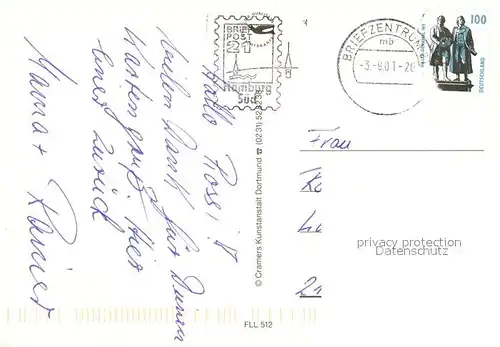 Hallo Rossi!
Vielen Dank für Deinen
Kartengruß. Hier
einer zurück
Mama + Rainer
BRIEF
POST
21
Hamburg
Süd
BRIEFZENTRUM
mb
-3.-8.01-20
100
DEUTSCHLAND
© Cramers Kunstanstalt Dortmund ☎ (0231)
Frau
privacy protection
Datenschutz
FLL 512